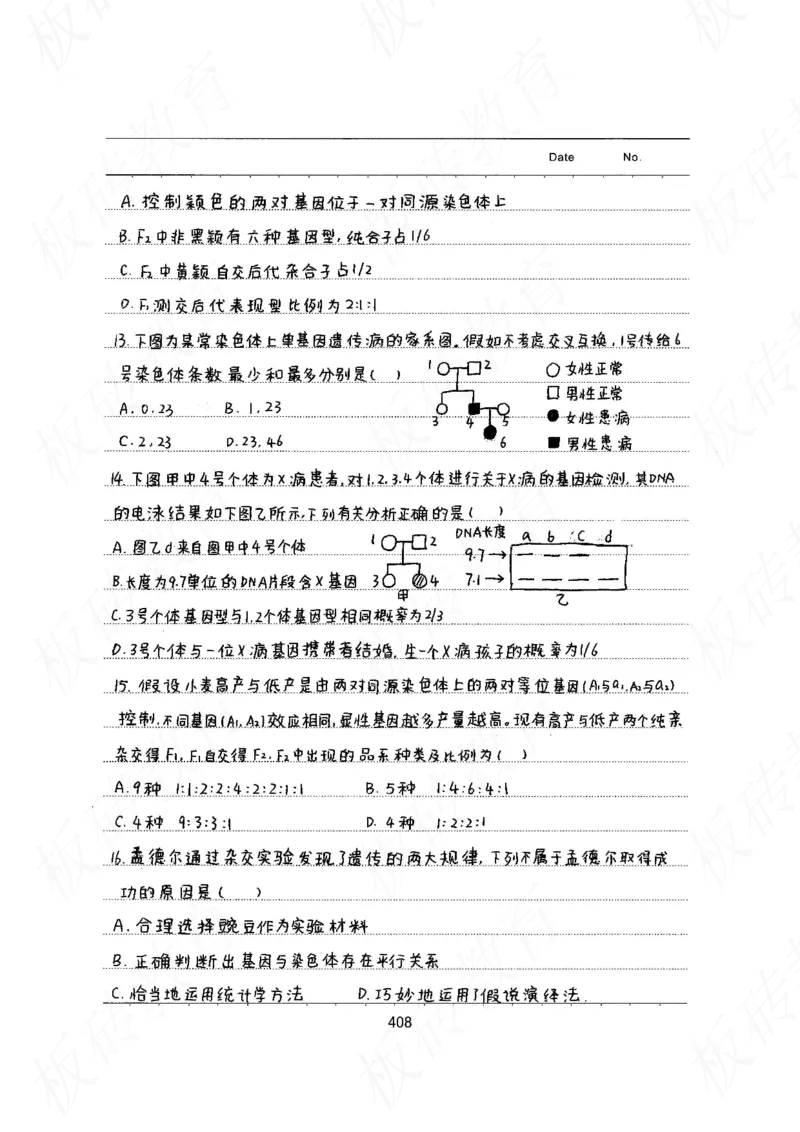 Date No.
A. 控制颖色的两对基因位于一对同源染色体上
B. F₂中非黑颖有六种基因型,纯合子占1/6
C. F₂中黄颖自交后代杂合子占1/2
D. F₁测交后代表现型比例为2:1:1
13. 下图为某常染色体上单基因遗传病的家系图。假如不考虑交叉互换,1号传给6
号染色体条数最少和最多分别是( )
1 2 女性正常
男性正常
A. 0.23 B. 1,23
3 4 5 女性患病
C. 2,23 D. 23,46
6 男性患病
14. 下图甲中4号个体为X病患者,对1.2.3.4个体进行关于X病的基因检测,其DNA
的电泳结果如下图乙所示,下列有关分析正确的是( )
DNA长度 a b c d
A. 图乙d来自图甲中4号个体 1 2 9.7→
B. 长度为9.7单位的DNA片段含X基因 3 4 7.1→
甲 乙
C. 3号个体基因型与1.2个体基因型相同概率为2/3
D. 3号个体与一位X病基因携带者结婚,生一个X病孩子的概率为1/6
15. 假设小麦高产与低产是由两对同源染色体上的两对等位基因(A₁与a₁,A₂与a₂)
控制,不同基因(A₁,A₂)效应相同,显性基因越多产量越高。现有高产与低产两个纯亲
杂交得F₁,F₁自交得F₂,F₂中出现的品系种类及比例为( )
A. 9种 1:1:2:2:4:2:2:1:1 B. 5种 1:4:6:4:1
C. 4种 9:3:3:1 D. 4种 1:2:2:1
16. 孟德尔通过杂交实验发现了遗传的两大规律,下列不属于孟德尔取得成
功的原因是( )
A. 合理选择豌豆作为实验材料
B. 正确判断出基因与染色体存在平行关系
C. 恰当地运用统计学方法 D. 巧妙地运用了假说演绎法.
408
板砖教育